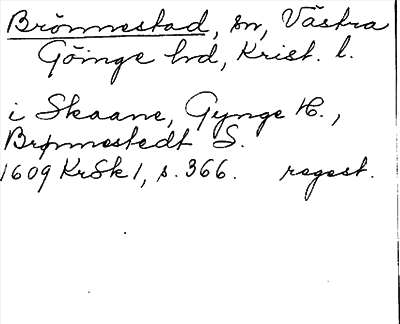 Brönnestad, sn, Västra
Göinge hd, Krist. l.
i Skaane, Gynge H.,
Brønnestedt S.
1609 KrSk 1, s. 366. regest.